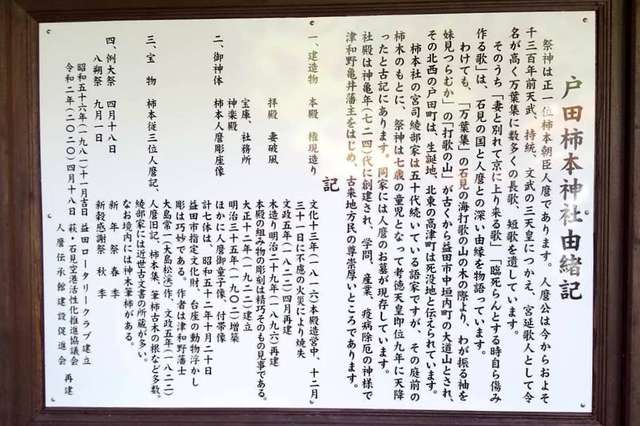 戸田柿本神社由緒記
祭神は正一位柿本朝臣人麿であります。人麿公は今からおよそ
千三百年前天武、持統、文武の三天皇につかえ、宮延歌人として令
名が高く万葉集に数多くの長歌、短歌を遺しています。
そのうち「妻と別れて京に上り来る歌」「臨死らんとする時自ら傷み
作る歌」は、石見の国と人麿との深い由縁を物語っています。
わけても、「万葉集」の石見の海打歌の山の木の際より、わが振る袖を
妹見つらむか」の「打歌の山」が古くから益田市中垣内町の大道山とされ、
その北西の戸田町は、生誕地、北東の高津町は死没地と伝えられています。
柿本社の宮司綾部家は五十代続いている語家ですが、その庭前の
柿木のもとに、祭神は七歳の童児となって考徳天皇即位九年に天降
ったと古記にあります。同家には人麿のお墓が現存しています。
社殿は神亀年(七二四)代に創建され、学問、産業、疫病除厄の神様で
津和野亀井藩主をはじめ、古来地方民の尊崇厚いところであります。
記
一、建造物 本殿 権現造り
拝殿 妻破風
宝庫、社務所
神楽殿
二、御神体 柿本人麿彫座像
三、宝物 柿本従三位人麿記、
四、例大祭 四月十八日
八朔祭 九月一日
文化十三年(一八一六)本殿造営中、十二月
三十一日に不慮の火災により焼失
文政五年(一八二二)四月再建
木造り明治二十九年(一八九六)再建
本殿の組み物の彫刻は精巧そのもの見事である。
大正十二年(一九二三)建立
明治三十五年(一九〇二)増築
ほかに人麿御童子像、付帯像
計七体は、昭和五十三年十月二十日
益田市指定文化財、台座の動物浮かし
彫は巧妙である。作者は津和野藩士
大島常一(大島松渓)作、文政五年(一八二二)
人麿旧記、柿本集、筆柿古木の根など多数。
綾部家には近世古文書の所蔵が多い。
なお境内には神木筆柿がある。
新年祭 春季
新穀感謝祭 秋季
昭和五十六年(一九八一)十一月吉日 益田ロータリークラブ 建立
令和二年(二〇二〇)四月十八日 萩・石見空港活性化推進協議会 再建
人麿伝承館建設促進会